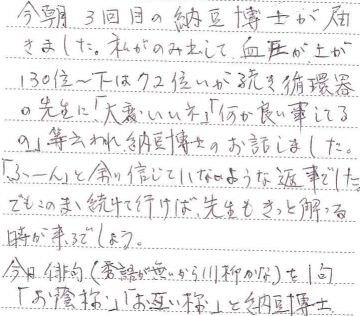 今朝 3回目の納豆博士が届
きました。私がのみ出して 血圧が上が
130位〜下は72位いが続き循環器
の先生に「大変いいネ」「何か良い事してる
の」等云われ納豆博士のお話しました。
「ふーん」と余り信じていないような返事でした。
でもこのまゝ続けて行けば、先生もきっと解る
時が来るでしょう。
今日俳句(季語が無いから川柳かな)を1句
「お陰様」「お互い様」と納豆博士